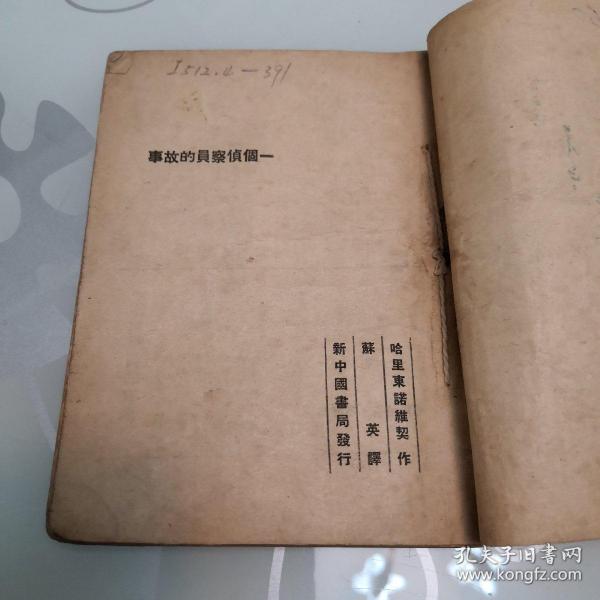 I512.4—391
一個偵察員的故事
哈里東諾維契 作
蘇 英 譯
新中國書局發行
孔夫子旧书网
www.kongfz.com